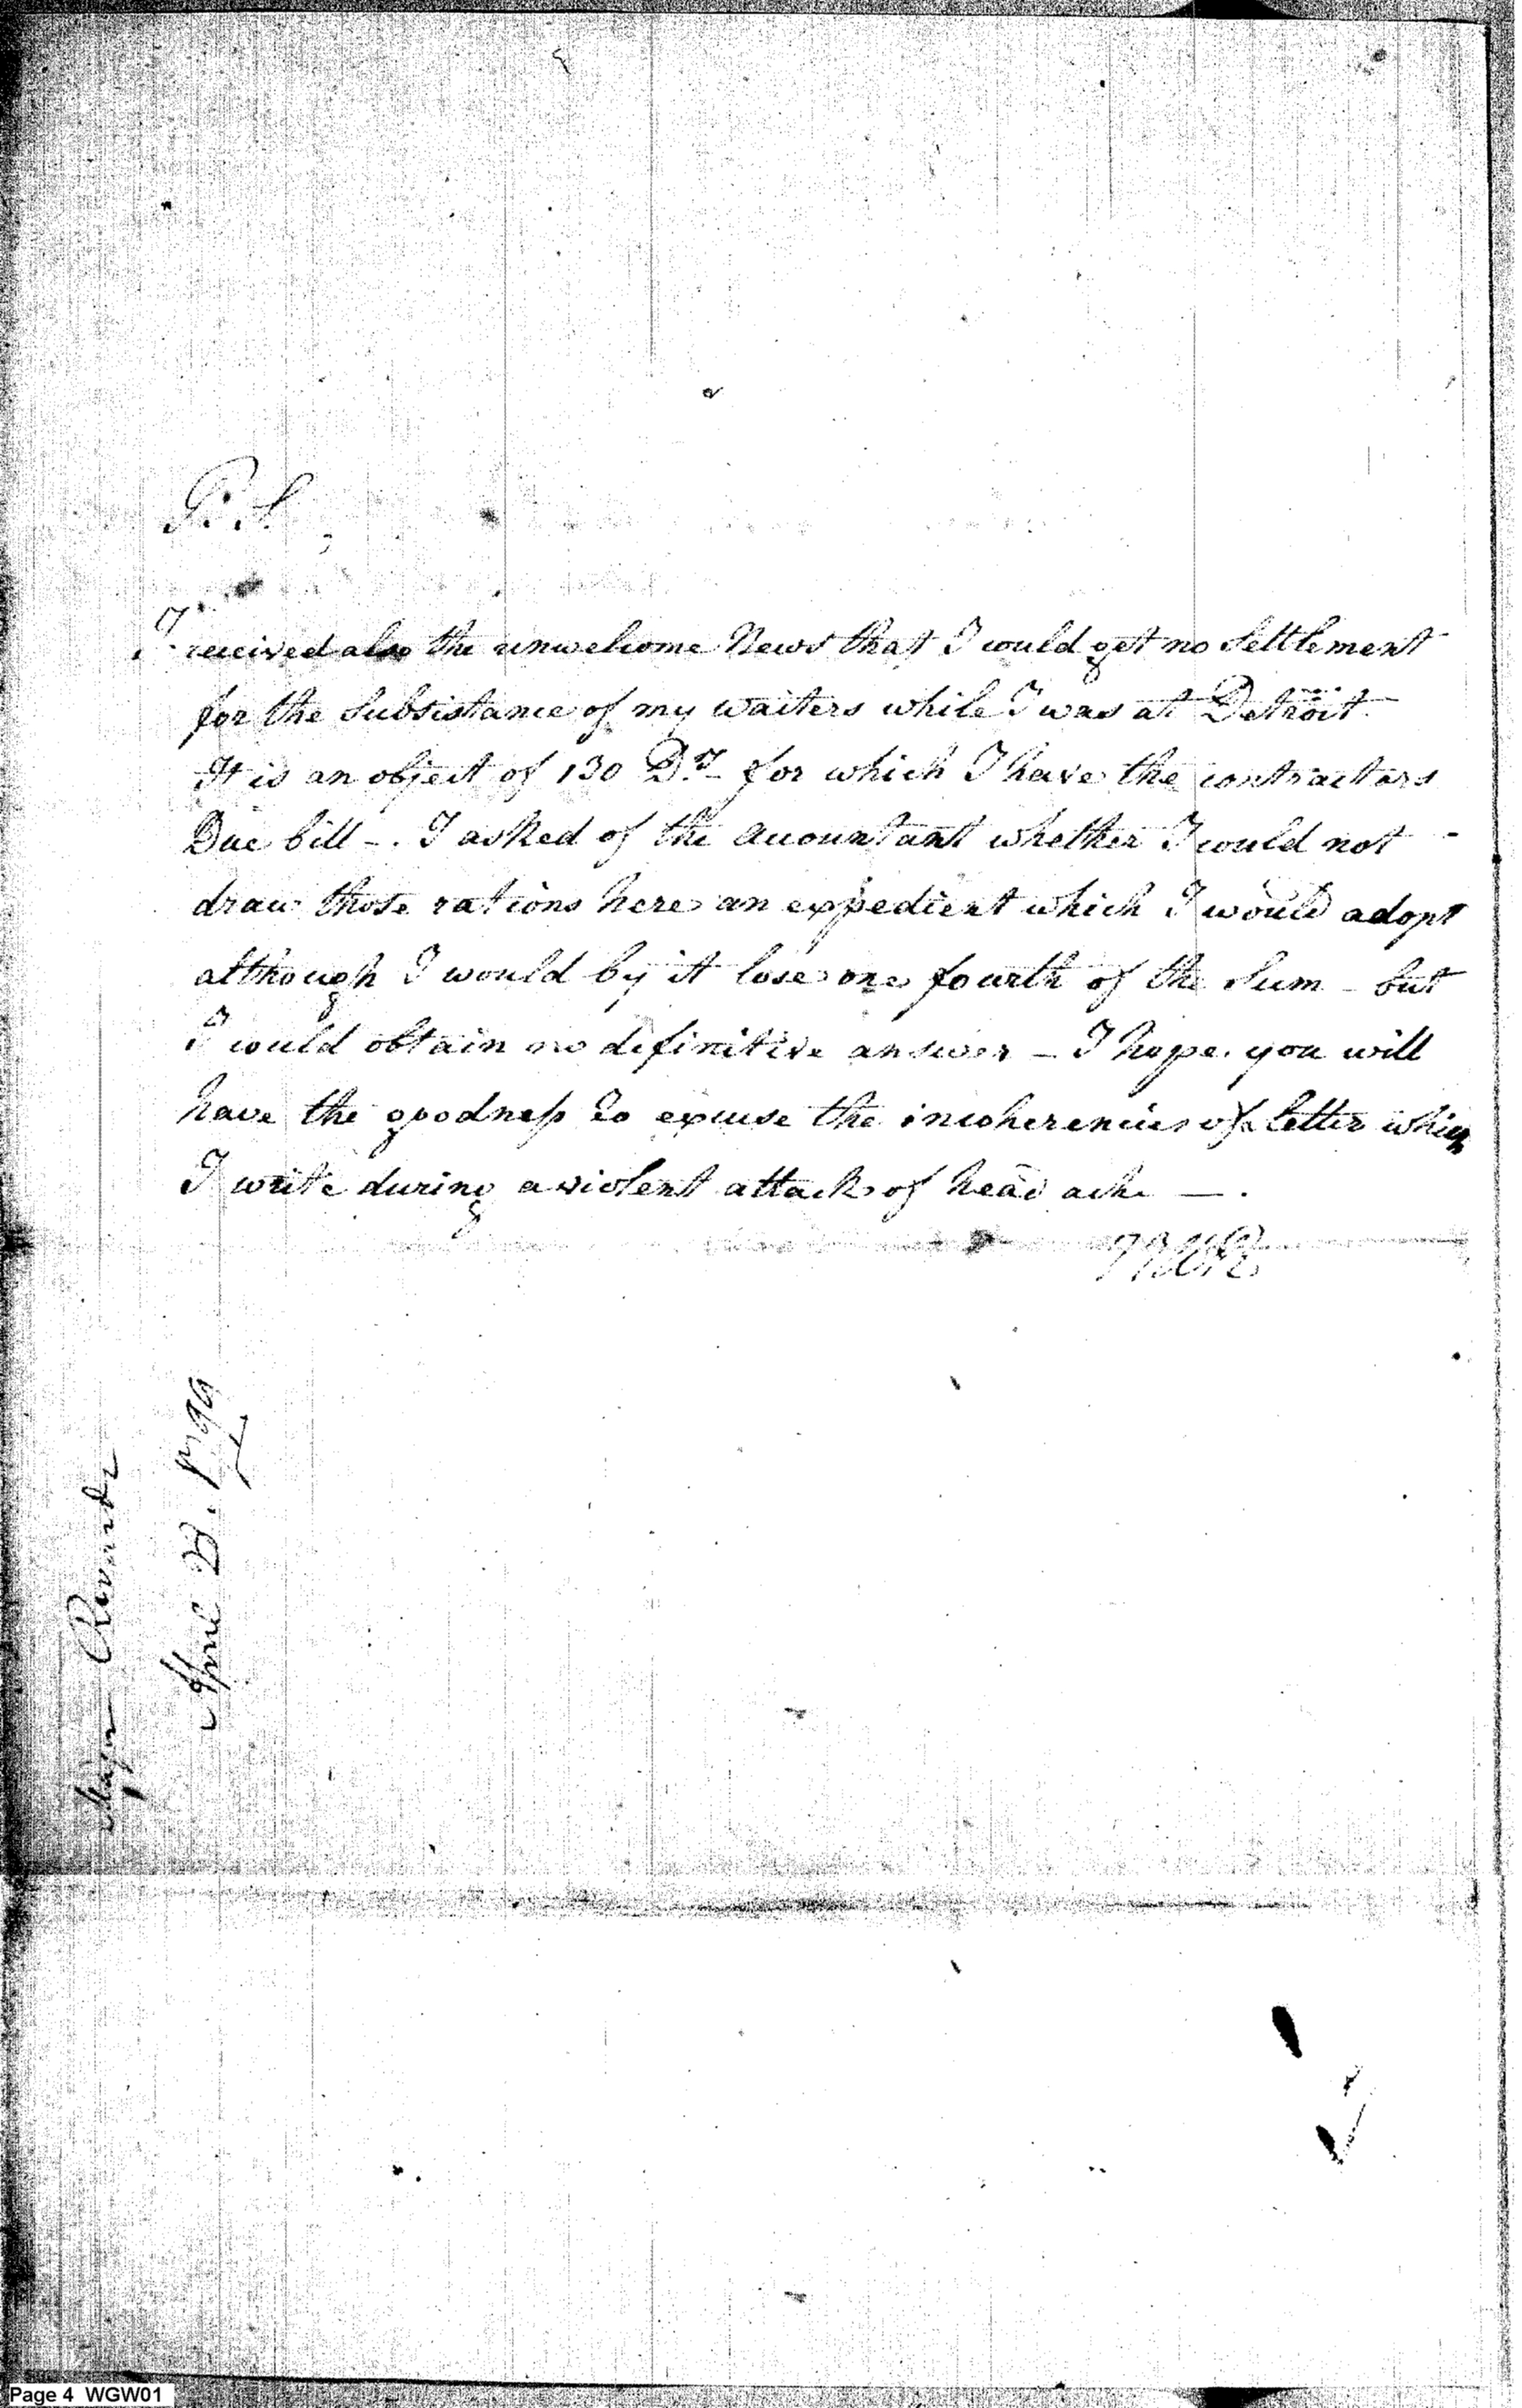 P. S.
I received also the unwelcome News that I would get no Settlement
for the Subsistance of my waiters while I was at Detroit.
It is an object of 130 Drs for which I have the contractors
Due bill -. I asked of the accountant whether I could not
draw those rations here an expedient which I would adopt
although I would by it lose one fourth of the Sum - but
I could obtain no definitive answer - I hope you will
have the goodness to excuse the incoherencies of letter which
I write during a violent attack of head ache —.
Major Rivardi
April 23. 1799
Page 4 WGW01